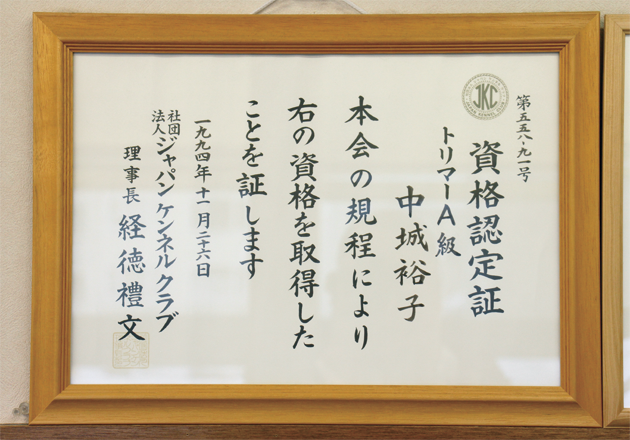 第五五八九一号
資格認定証
トリマーA級
中城裕子
本会の規程により
右の資格を取得した
ことを証します
一九九四年十一月二十六日
社団法人ジャパンケンネルクラブ
理事長 経徳禮文
JKC